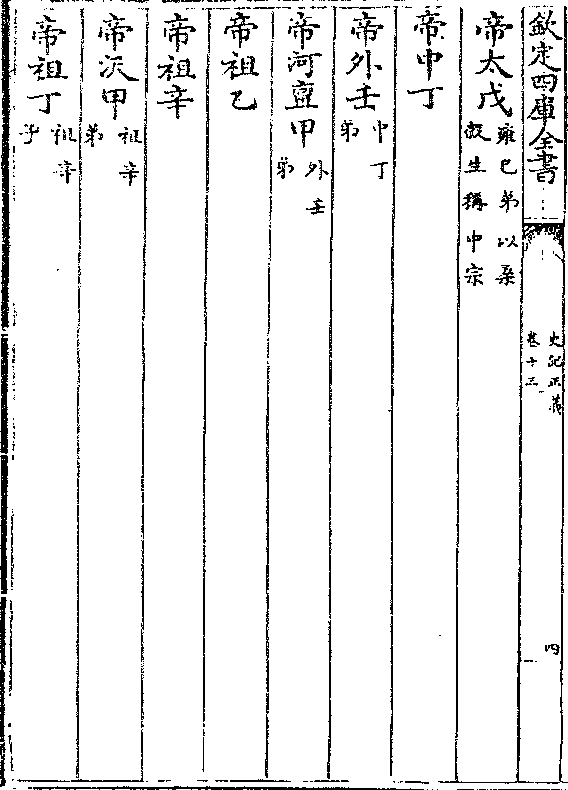 欽定四庫全書
史記正義
卷十三
四
帝太戊雍已弟以桑
榖生稱中宗
帝中丁
帝外壬中丁
弟
帝河亶甲外壬
弟
帝祖乙
帝祖辛
帝沃甲祖辛
弟
帝祖丁祖辛
子